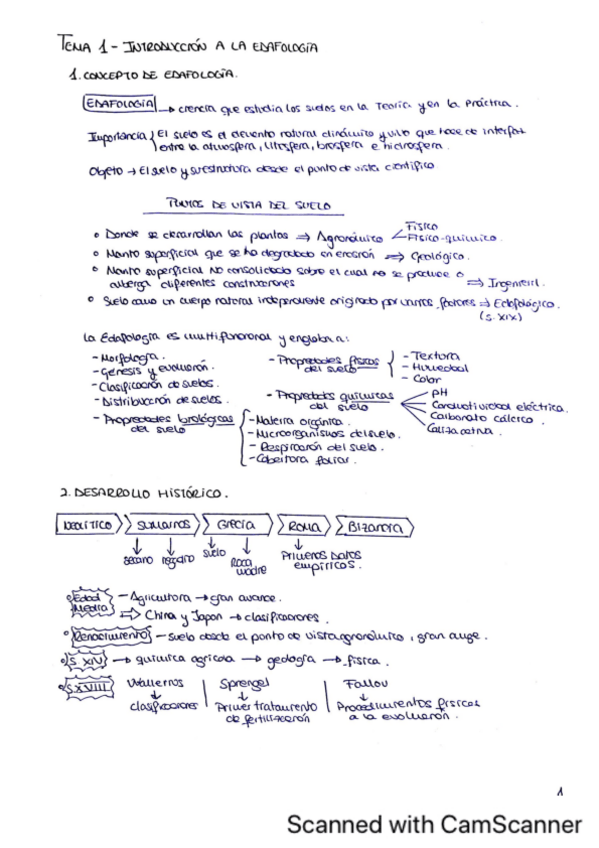 TEMA 1 - INTRODUCCIÓN A LA EDAFOLOGÍA
1. CONCEPTO DE EDAFOLOGÍA.
EDAFOLOGÍA → ciencia que estudia los suelos en la Teoría y en la Práctica.
Importancia { El suelo es el elemento natural dinámico y vivo que hace de interfaz
entre la atmosfera, litosfera, biosfera e hidrosfera.
Objeto → El suelo y su estructura desde el punto de vista científico
PUNTOS DE VISTA DEL SUELO
• Donde se desarrollan las plantas ⇒ Agronómico Físico
Físico-químico.
• Manto superficial que se ha degradado en erosión ⇒ Geológico.
• Manto superficial no consolidado sobre el cual no se produce o
alberga diferentes construcciones ⇒ Ingenieril.
• Suelo como un cuerpo natural independiente originado por varios factores ⇒ Edafológico.
(S. XIX)
La Edafología es multifuncional y engloba a:
- Morfología.
- Génesis y evolución.
- Clasificación de suelos.
- Distribución de suelos.
- Propiedades biológicas
del suelo
- Materia orgánica.
- Microorganismos del suelo.
- Respiración del suelo.
- Cobertora foliar.
- Propiedades físicas
del suelo
- Textura
- Humedad
- Color
- Propiedades químicas
del suelo
PH
Conductividad eléctrica.
Carbonato cálcico.
Caliza activa.
2. DESARROLLO HISTÓRICO.
NEOLÍTICO SUMARIOS GRECIA ROMA BIZANCIA
secano regadío suelo Roca
madre Primeros Datos
empíricos.
• Edad
Media - Agricultura → gran avance.
⇒ China y Japon → clasificaciones.
• Renacimiento - suelo desde el punto de vista agronómico, gran auge.
• S XIV → química agrícola → geología → física.
• S XVIII Wallerius Sprengel Fallou
↓ ↓ ↓
clasificaciones Primer tratamiento Procedimientos físicos
de fertilización a la evolución.
1
Scanned with CamScanner